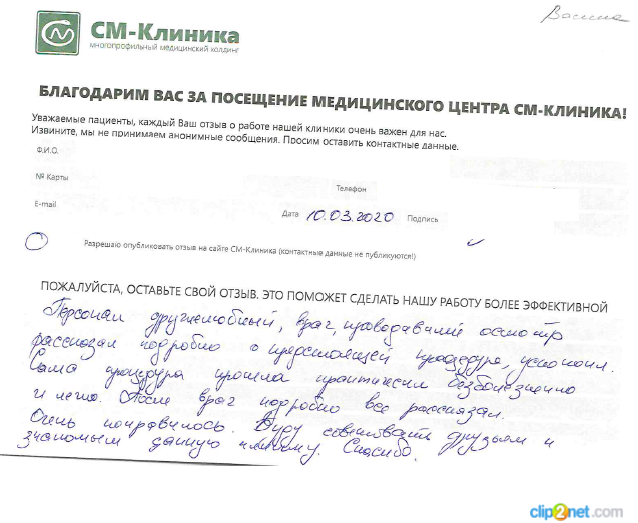 СМ-Клиника
многопрофильный медицинский холдинг
БЛАГОДАРИМ ВАС ЗА ПОСЕЩЕНИЕ МЕДИЦИНСКОГО ЦЕНТРА СМ-КЛИНИКА!
Уважаемые пациенты, каждый Ваш отзыв о работе нашей клиники очень важен для нас.
Извините, мы не принимаем анонимные сообщения. Просим оставить контактные данные.
Ф.И.О.
№ Карты
Телефон
E-mail
Дата 10.03.2020 Подпись
Разрешаю опубликовать отзыв на сайте СМ-Клиника (контактные данные не публикуются!)
ПОЖАЛУЙСТА, ОСТАВЬТЕ СВОЙ ОТЗЫВ. ЭТО ПОМОЖЕТ СДЕЛАТЬ НАШУ РАБОТУ БОЛЕЕ ЭФФЕКТИВНОЙ
Персонал дружелюбный, врач, проводивший осмотр
рассказал подробно о предстоящей процедуре, успокоил.
Сама процедура прошла практически безболезненно
и легко. После врач подробно все рассказал.
Очень понравилось. Буду советовать друзьям и
знакомым данную клинику. Спасибо.
clip2net.com